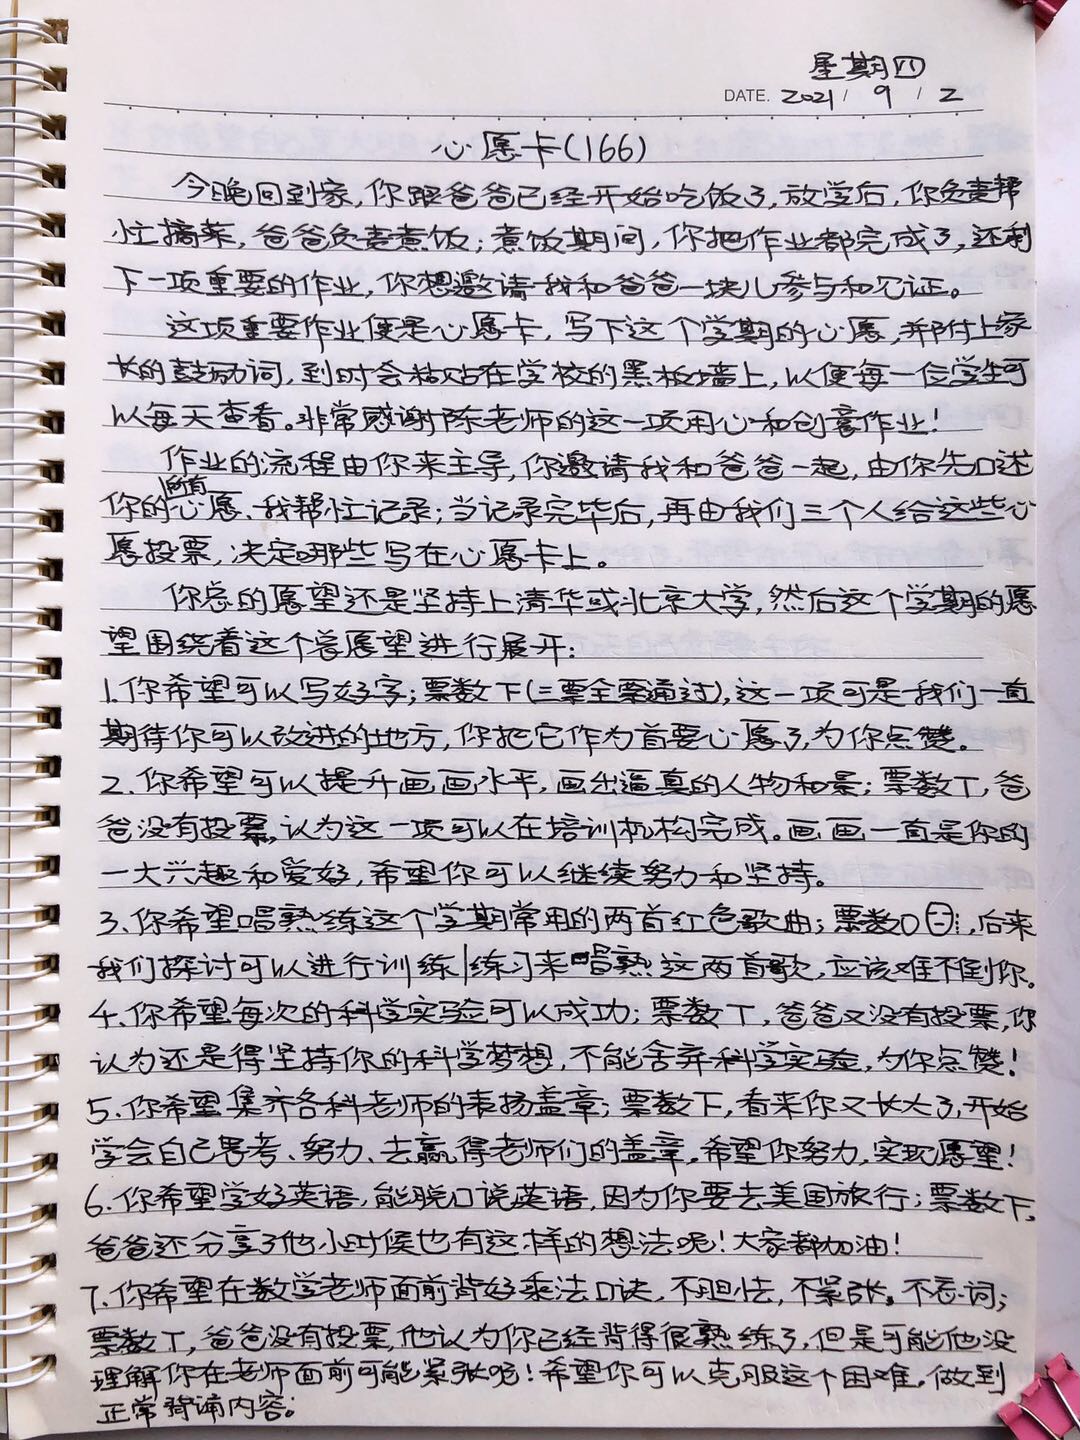 星期四
DATE. 2021 / 9 / 2
心愿卡(166)
今晚回到家,你跟爸爸已经开始吃饭了,放学后,你负责帮
忙摘菜,爸爸负责煮饭;煮饭期间,你把作业都完成了,还剩
下一项重要的作业,你想邀请我和爸爸一块儿参与和见证。
这项重要作业便是心愿卡,写下这个学期的心愿,并附上家
长的鼓励词,到时会粘贴在学校的黑板墙上,以便每一位学生可
以每天查看。非常感谢陈老师的这一项用心和创意作业!
作业的流程由你来主导,你邀请我和爸爸一起,由你先口述
你的所有心愿、我帮忙记录;当记录完毕后,再由我们三个人给这些心
愿投票,决定哪些写在心愿卡上。
你总的愿望还是坚持上清华或北京大学,然后这个学期的愿
望围绕着这个总愿望进行展开:
1.你希望可以写好字;票数下(三票全票通过),这一项可是我们一直
期待你可以改进的地方,你把它作为首要心愿了,为你点赞。
2.你希望可以提升画画水平,画出逼真的人物和景;票数丅,爸
爸没有投票,认为这一项可以在培训机构完成。画画一直是你的
一大兴趣和爱好,希望你可以继续努力和坚持。
3.你希望唱熟练这个学期常用的两首红色歌曲;票数0,后来
我们探讨可以进行训练/练习来唱熟这两首歌,应该难不倒你。
4.你希望每次的科学实验可以成功;票数丅,爸爸又没有投票,你
认为还是得坚持你的科学梦想,不能舍弃科学实验,为你点赞!
5.你希望集齐各科老师的表扬盖章;票数下,看来你又长大了,开始
学会自己思考、努力、去赢得老师们的盖章,希望你努力,实现愿望!
6.你希望学好英语,能脱口说英语,因为你要去美国旅行;票数下,
爸爸还分享了他小时候也有这样的想法呢!大家都加油!
7.你希望在数学老师面前背好乘法口诀,不胆怯,不紧张,不忘词;
票数丅,爸爸没有投票,他认为你已经背得很熟练了,但是可能他没
理解你在老师面前可能紧张呢!希望你可以克服这个困难,做到
正常背诵内容;